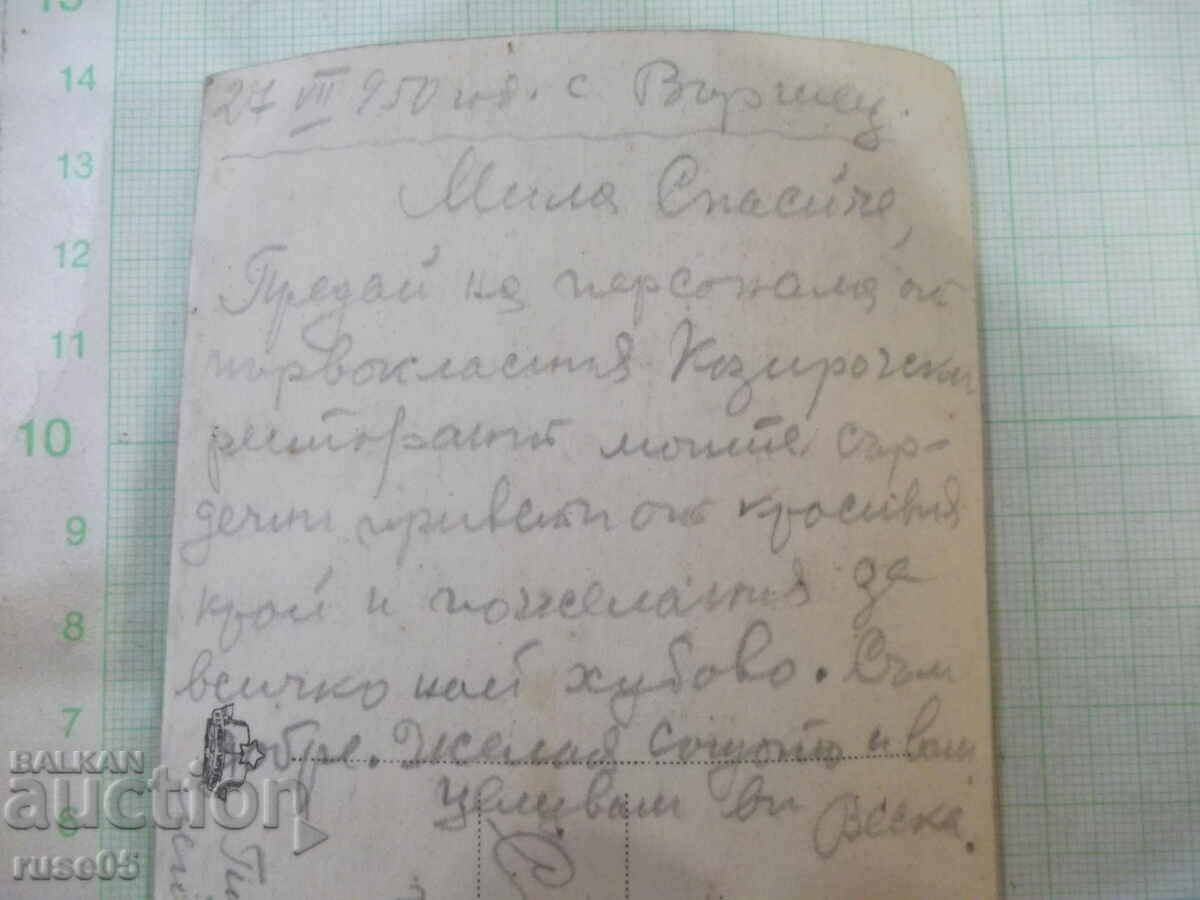 27 VII 950 год. с Вършец.
Мила Спасиче,
Предай на персонала от
първокласния Козирочски
ресторант моите сър-
дечни привети от красивия
край и пожелания за
всичко най хубаво. Съм
добре. Желая същото и вам
Целувам ви Веска.
15
14
13
12
11
10
9
8
7
6
BALKAN
auction
ruse05